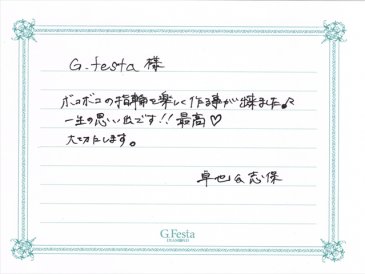 G.festa 様
ボコボコの指輪を楽しく作る事が出来ました♪
一生の思い出です!!最高♡
大切にします。
卓也&志保
G.Festa